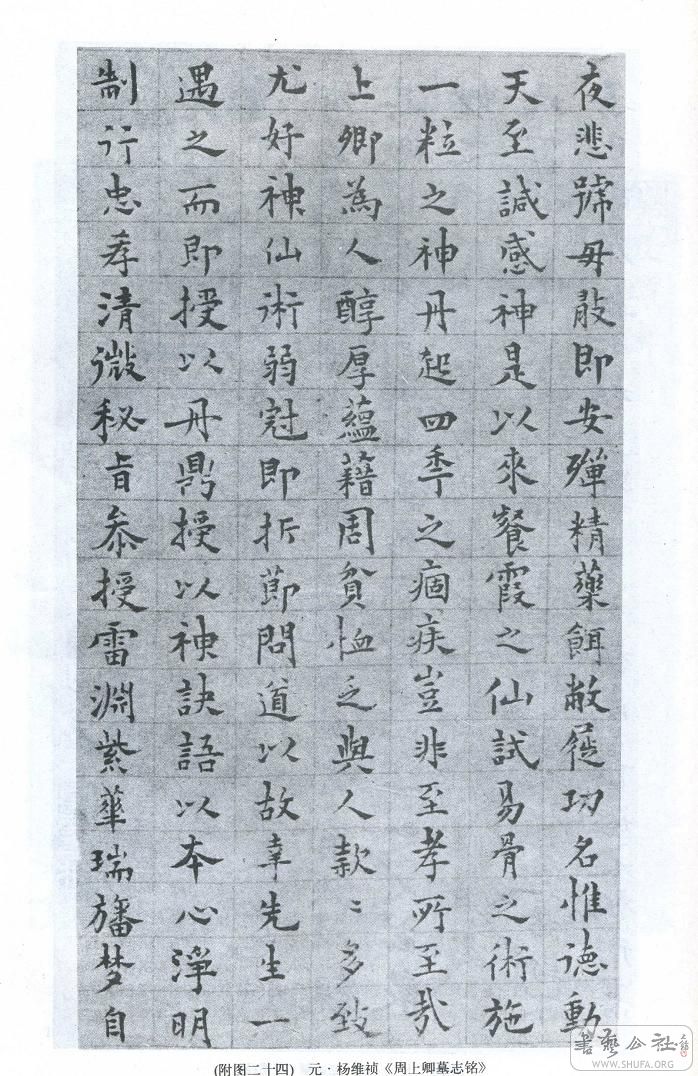 夜悲號毋敢即安殫精藥餌敝屣功名惟德動
天至諴感神是以來餐霞之仙試易骨之術施
一粒之神丹起四秊之痼疾豈非至孝所至哉
上卿為人醇厚蘊藉周貧恤乏與人款〻多致
尤好神仙術弱冠即折節問道以故幸先生一
遇之而即授以丹鼎授以神訣語以本心淨明
制行忠孝清微秘旨叅授雷淵紫華瑞旛梦自
(附图二十四) 元·杨维祯《周上卿墓志铭》
書藝公社
WWW.SHUFA.ORG